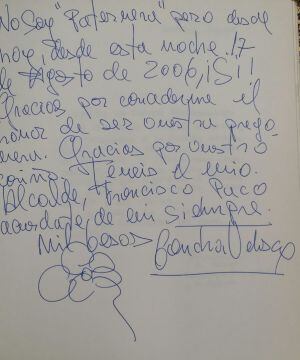 No Soy "Paternera" pero desde
hoy, desde esta noche 17
de Agosto de 2006, ¡Sí!!
Gracias por concederme el
honor de ser vuestra prego-
nera. Gracias por vuestro
cariño. Tenéis el mío.
Alcalde, Francisco Paco
acordate de mi siempre.
Mil besos